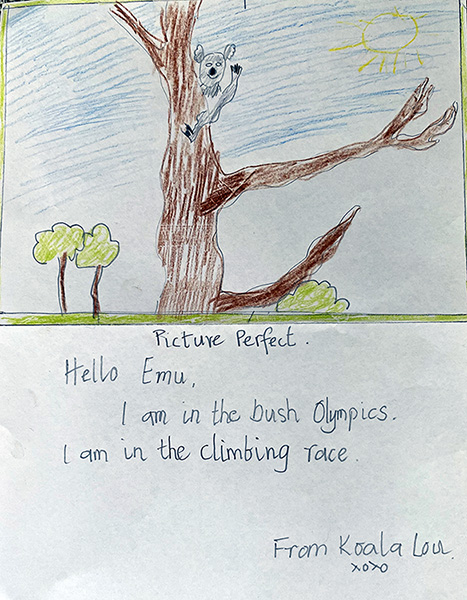 Picture Perfect.
Hello Emu,
I am in the bush Olympics.
I am in the climbing race.
From Koala Lou.
xoxo